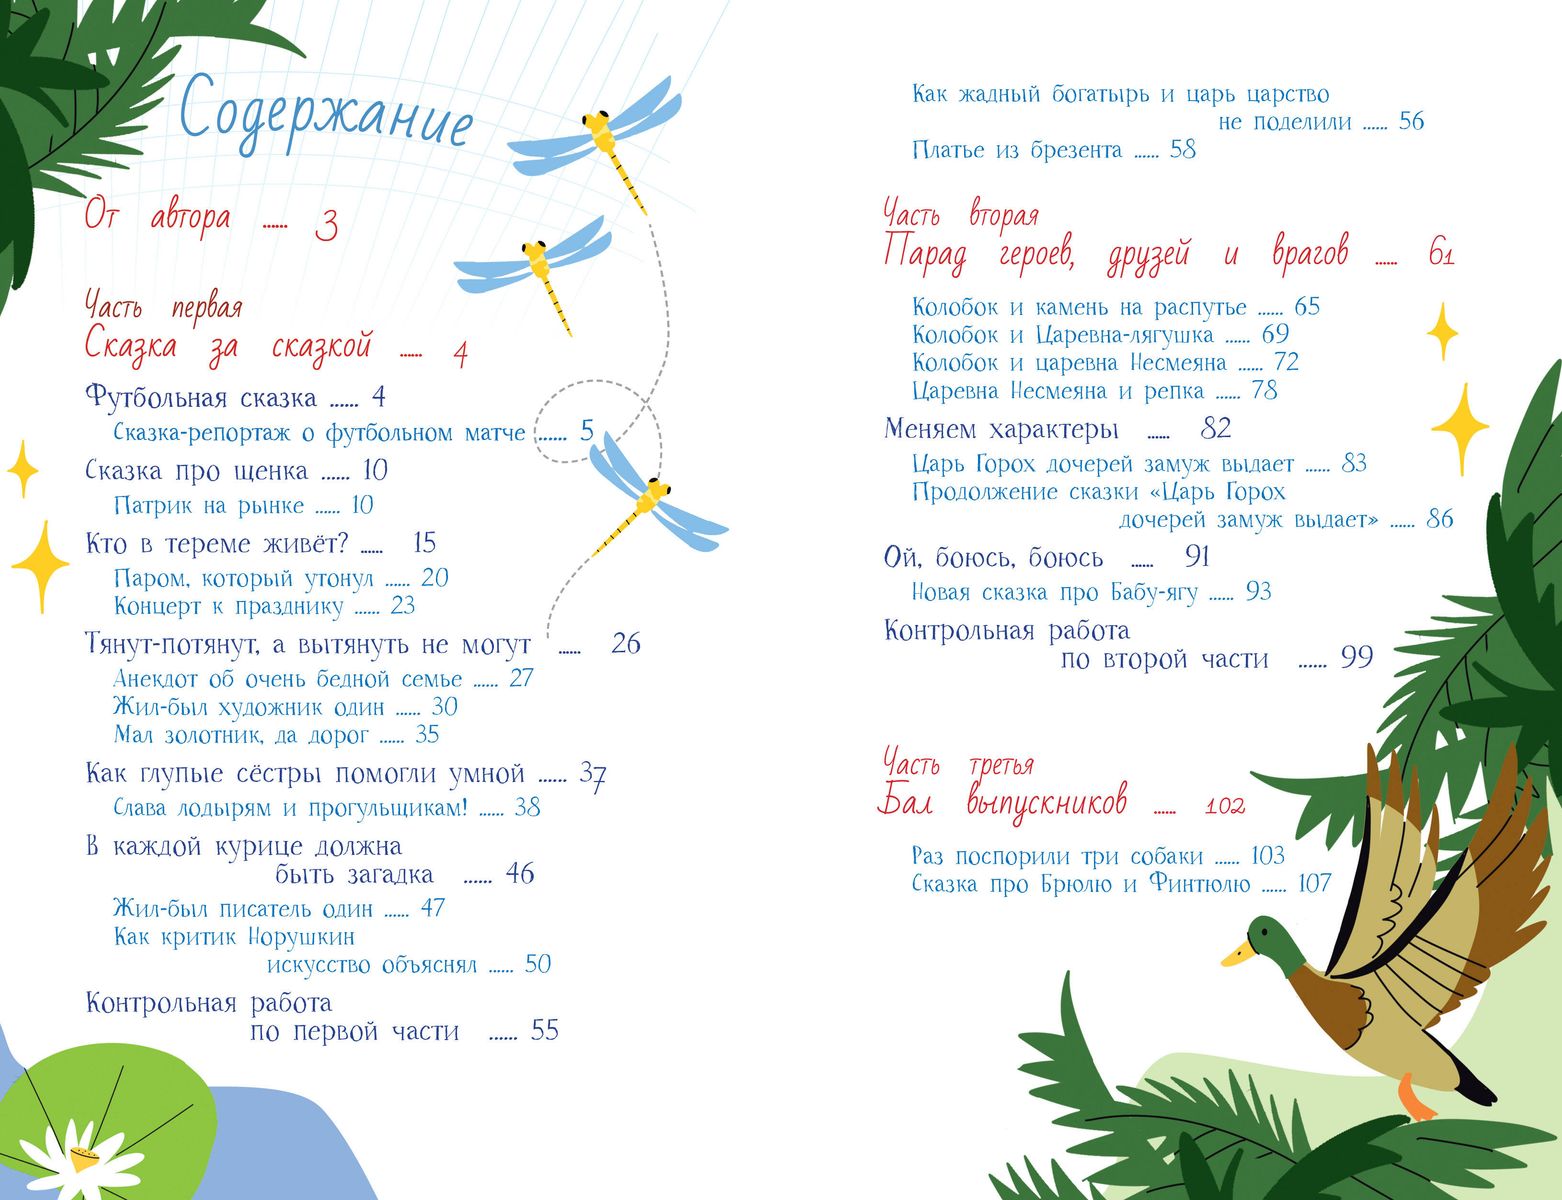 Содержание
От автора ...... 3
Часть первая
Сказка за сказкой ...... 4
Футбольная сказка ...... 4
Сказка-репортаж о футбольном матче ...... 5
Сказка про щенка ...... 10
Патрик на рынке ...... 10
Кто в тереме живёт? ...... 15
Паром, который утонул ...... 20
Концерт к празднику ...... 23
Тянут-потянут, а вытянуть не могут ...... 26
Анекдот об очень бедной семье ...... 27
Жил-был художник один ...... 30
Мал золотник, да дорог ...... 35
Как глупые сёстры помогли умной ...... 37
Слава лодырям и прогульщикам! ...... 38
В каждой курице должна
быть загадка ...... 46
Жил-был писатель один ...... 47
Как критик Норушкин
искусство объяснял ...... 50
Контрольная работа
по первой части ...... 55
Как жадный богатырь и царь царство
не поделили ...... 56
Платье из брезента ...... 58
Часть вторая
Парад героев, друзей и врагов ...... 61
Колобок и камень на распутье ...... 65
Колобок и Царевна-лягушка ...... 69
Колобок и царевна Несмеяна ...... 72
Царевна Несмеяна и репка ...... 78
Меняем характеры ...... 82
Царь Горох дочерей замуж выдает ...... 83
Продолжение сказки «Царь Горох
дочерей замуж выдает» ...... 86
Ой, боюсь, боюсь ...... 91
Новая сказка про Бабу-ягу ...... 93
Контрольная работа
по второй части ...... 99
Часть третья
Бал выпускников ...... 102
Раз поспорили три собаки ...... 103
Сказка про Брюлю и Финтюлю ...... 107